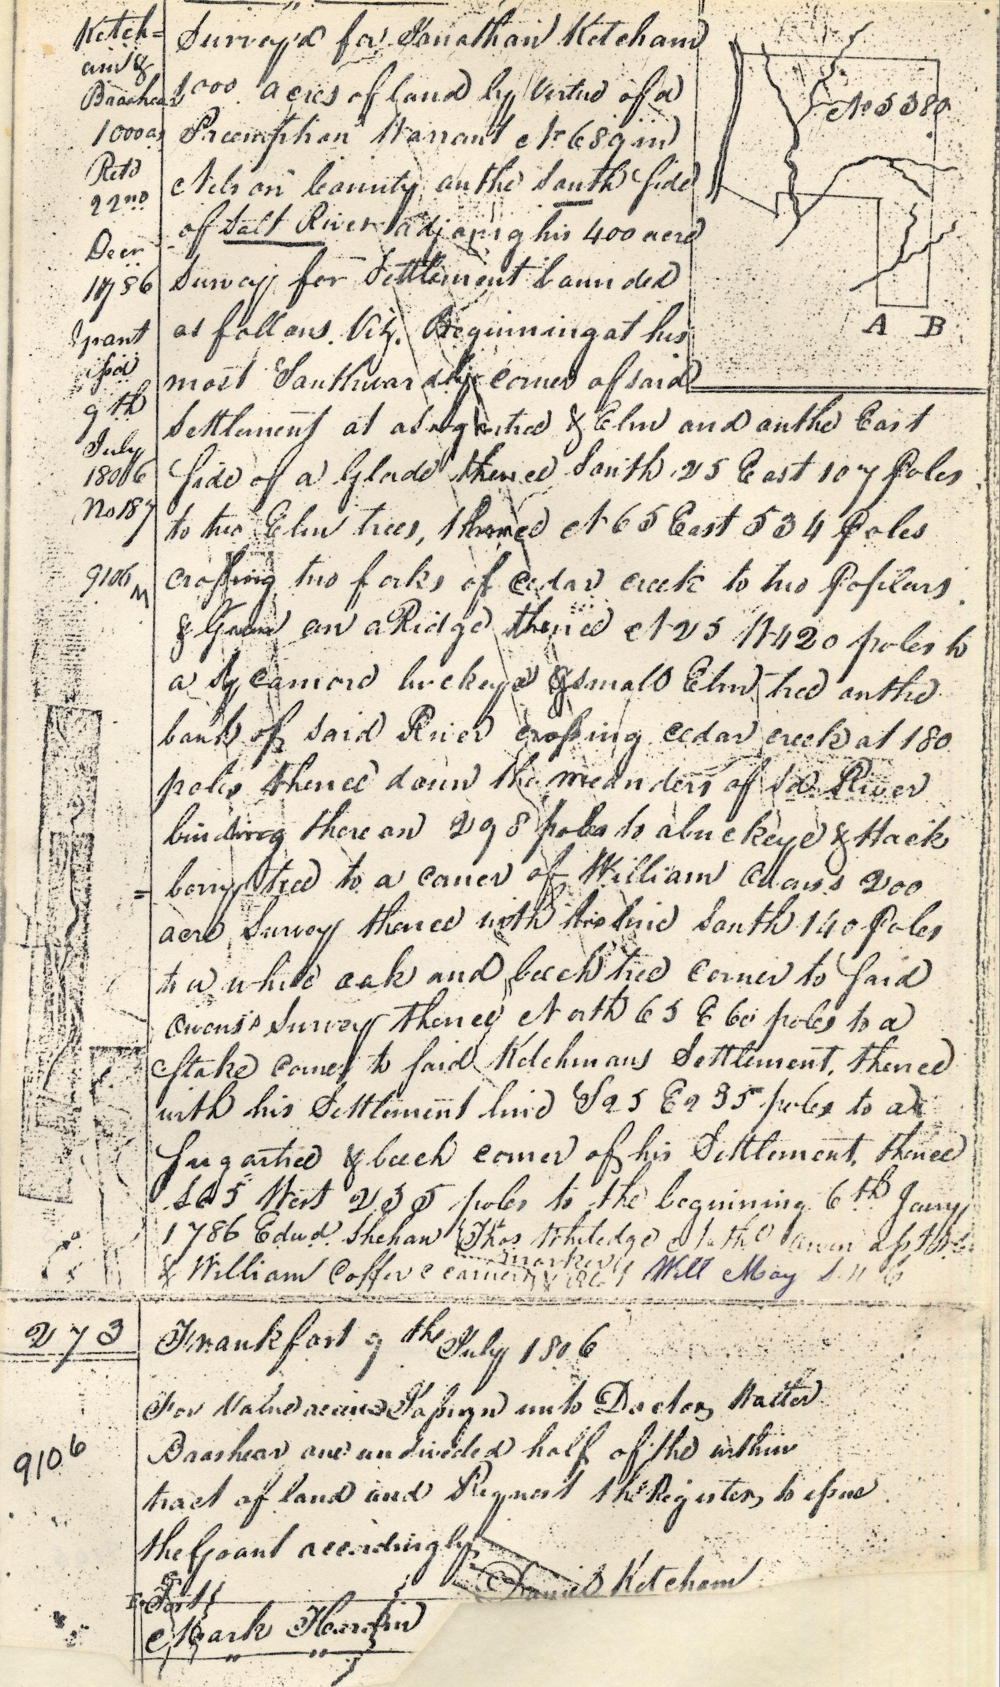 Ketch=
am &
Brashear
1000 as
Retd
22nd
Decr
1786
grant
ifsd
9th
July
1806
No 187
9106
M
Survey'd for Jonathan Ketcham
1000 acres of land by Vertue of a
Preemption Warrant No 689 in
Nelson County on the South Side
of Salt River adjoing his 400 acre
Survey for Settlement bounded
as follows. Viz. Beginning at his
most Southwardly corner of said
Settlement at a sugartree & Elm and on the East
side of a Glade thence South 25 East 107 Poles
to two Elm trees, thence N 65 East 534 Poles
crossing two forks of cedar creek to two Poplars
& Gum on a Ridge thence N 25 W 420 poles to
a Sycamore buckeye & small Elm tree on the
bank of said River crossing cedar creek at 180
poles thence down the meanders of sd River
binding thereon 298 poles to a buckeye & Hack
berry tree to a corner of William Owens 200
acre Survey thence with his line South 140 Poles
to a white oak and beech tree corner to said
Owens's Survey thence North 65 E 60 poles to a
Stake corner to said Ketchmans Settlement, thence
with his Settlement line S 25 E 235 poles to a
Sugartree & beech corner of his Settlement, thence
S 65 West 255 poles to the beginning 6th Jany
1786 Edwd Shehan Thos Whiledge
& William Coffer marker Will May
No 5380
A B
273
9106
Frankfort 9th July 1806
For Value receivd I assign unto Doctor Walter
Brashear one undivided half of the within
tract of land and Request the Register to issue
the Grant accordingly
Daniel Ketcham
Test
Mark Hardin